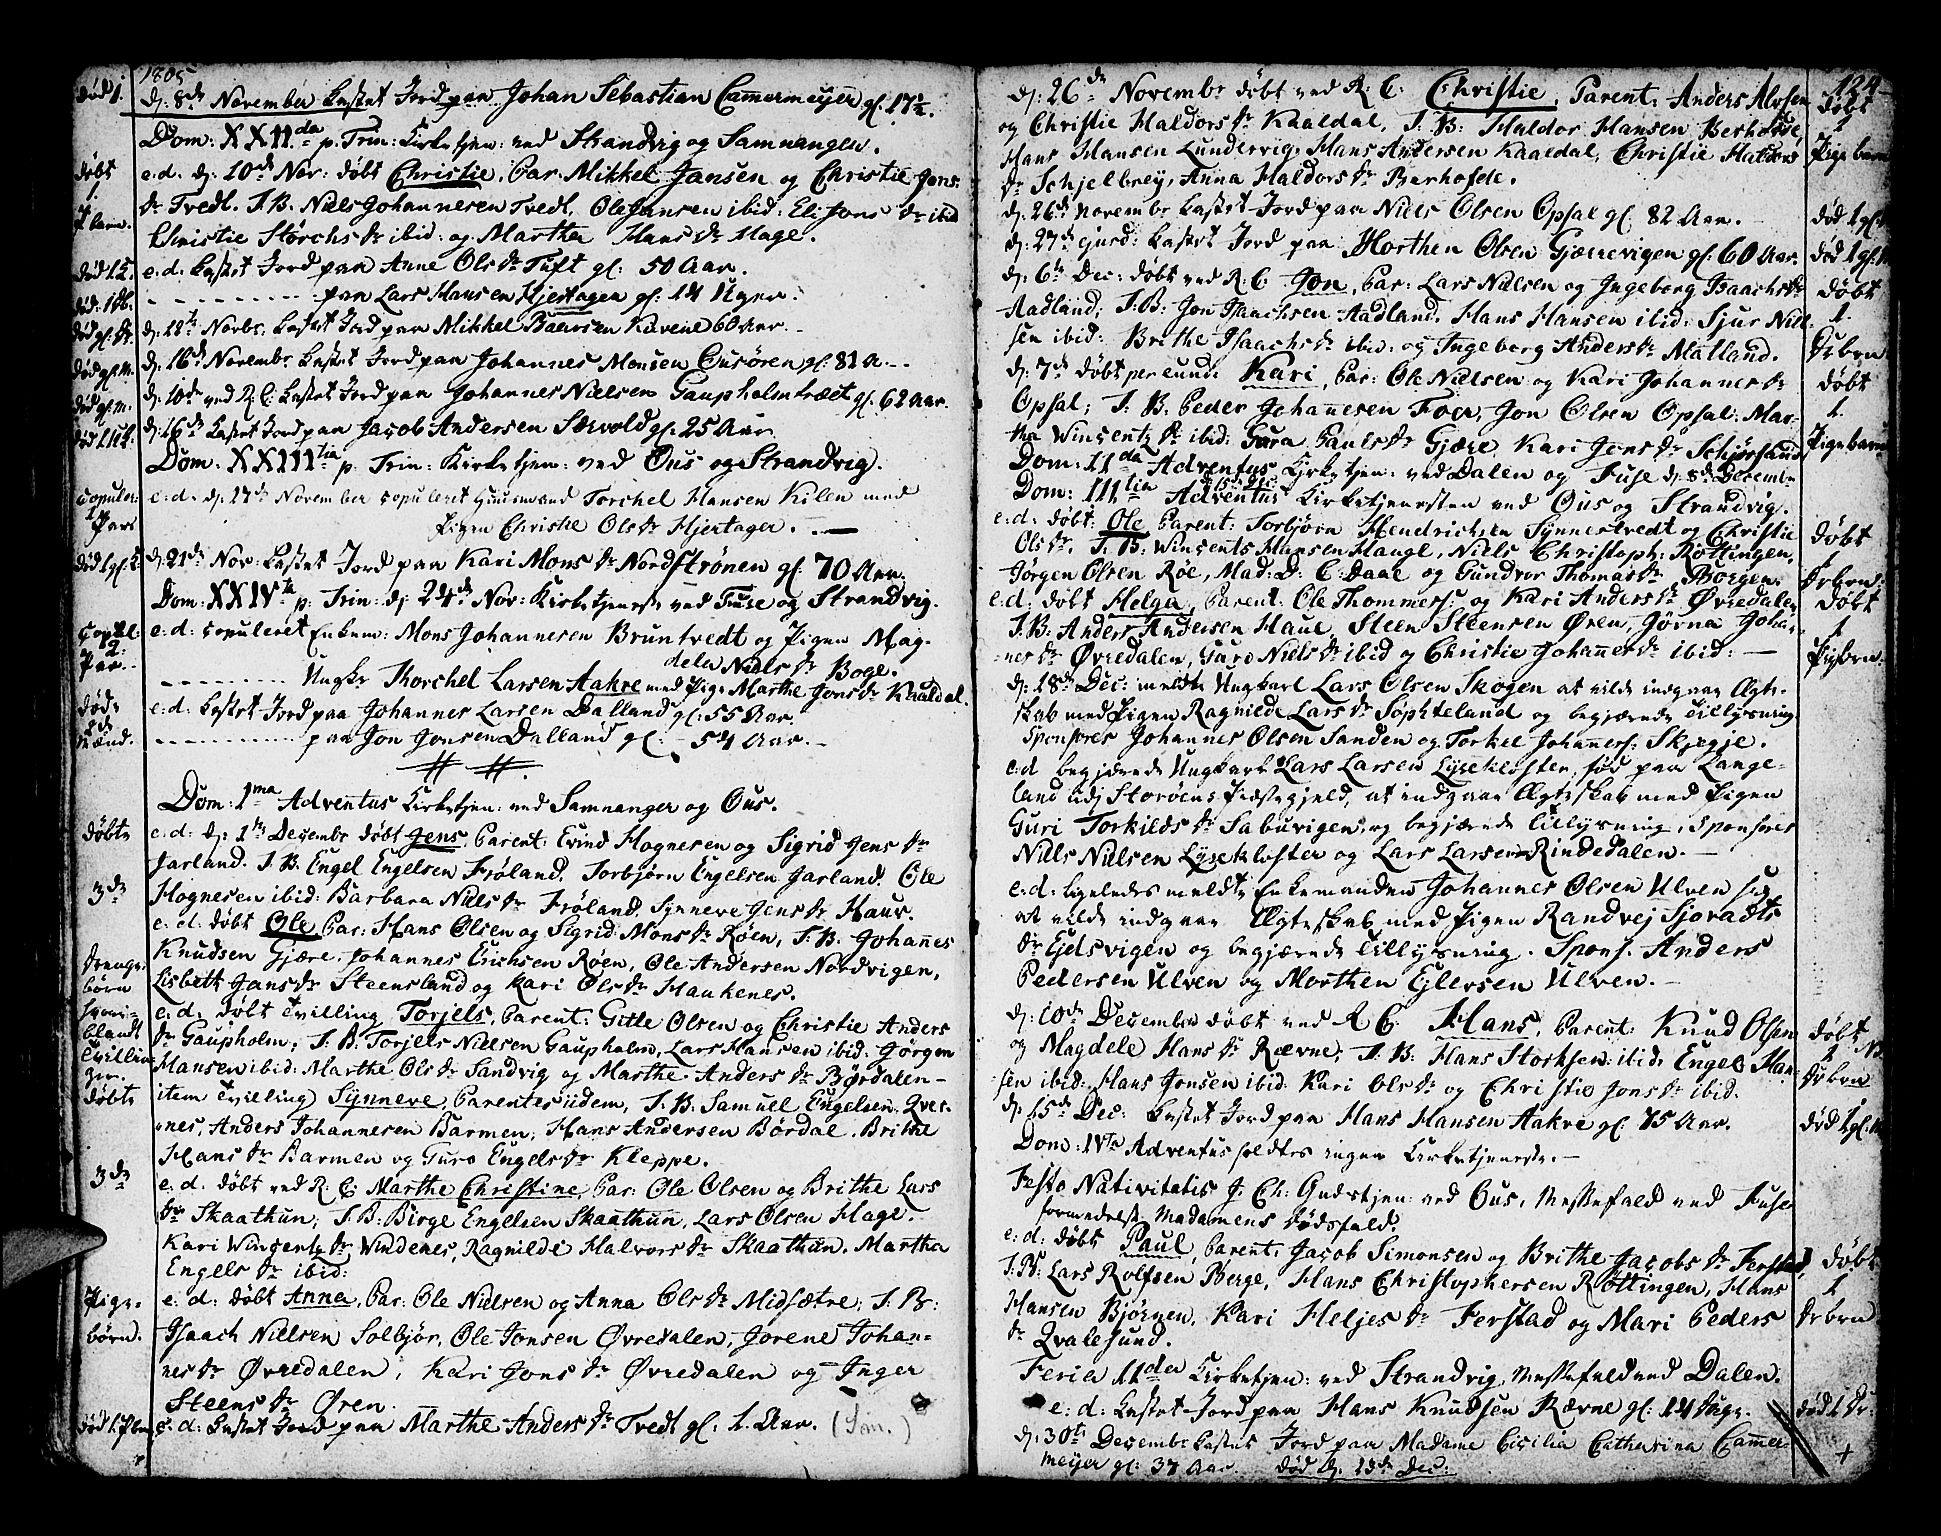 1805
død 1. d: 8de November kastet Jord paa Johan Sebastian Cammermeyer gl: 17½.
Dom: XXIIda p. Trin: Kirketjen: ved Strandvig og Samnanger.
døbt e.d. d: 10de Nov: døbt Christie, Par. Mikkel Jansen og Christie Jons
1. dr Tvedt. T.B. Niels Johannesen Tvedt, Ole Jansen ibid: Eli Jons dr ibid
P. barn. Christie Størchs dr ibid: og Martha Hans dr Hage.
e.d. kastet Jord paa Anne Ols dr Tuft gl: 50 Aar.
- - - - - - paa Lars Hansen Hjertagen gl: 14 Uger.
Novbr: kastet Jord paa Mikkel Kuvene 60 Aar.
død gl. m. d: 16de Novembr kastet Jord paa Johannes Monsen Ousøren gl: 81 A.
død gl. m. d: 10de ved R.C. kastet Jord paa Johannes Nielsen Gaupholmtræet gl: 62 Aar.
d: 16de kastet Jord paa Jacob Andersen Sævold gl: 25 Aar
Dom: XXIIItia p. Trin: Kirketjen: ved Ous og Strandvig.
copuler: e.d. d: 17de November copuleret Huusmand Torchel Hansen Kilen med
1 Par Pigen Christie Ols dr Hjertager.
d: 21de Nov: kastet Jord paa Kari Mons dr Nordstrønen gl: 70 Aar.
Dom: XXIVta p. Trin: d: 24de Nov: Kirketjeneste ved Fuse og Strandvig.
copul: e.d: copuleret Enkem: Mons Johannesen Bruntvedt og Pigen Mag-
2 Par. dela Niels dr Boge.
- - - - - Ungkr Thorchel Larsen Aakre med Pige Marthe Jons dr Kaaldal.
døde e.d. kastet Jord paa Johannes Larsen Dalland gl: 55 Aar.
2de Mænd. - - - - - paa Jon Jonsen Dalland gl: 54 Aar.
Dom: 1ma Adventus Kirketjen: ved Samnanger og Ous.
døbte e.d: d: 1te Decembr døbt Jens, Parent: Evind Hognesen og Sigrid Jens dr
Jarland. T.B. Engel Engelsen Frøland. Torbjørn Engelsen Jarland. Ole
3de Hognesen ibid: Barbara Niels dr Frøland. Synneve Jens dr Hauv.
e.d. døbt Ole Par: Hans Olsen og Sigrid Mons dr Røen, T.B. Johannes
Knudsen Gjære, Johannes Erichsen Røen, Ole Andersen Nordvigen,
Drenge børn Lisbett Jans dr Steensland og Kari Ols dr Haukenes.
hvori- e.d. døbt Tvilling Torjels, Parent: Gitle Olsen og Christie Anders
blandt dr Gaupholm, T.B. Torjels Nielsen Gaupholm, Lars Hansen ibid: Jørgen
Tvillinger. Hansen ibid: Marthe Ols dr Sandvig og Marthe Anders dr Børdalen-
døbte item Tvilling Synneve, Parentes iidem, T.B. Samuel Engelsen Qver-
nes, Anders Johannesen Barmen, Hans Andersen Børdal. Brithe
Hans dr Barmen og Guro Engels dr Kleppe.
3de e.d. døbt ved R.C. Marthe Christine, Par: Ole Olsen og Brithe Lars
dr Skaathun; T.B: Birge Engelsen Skaathun, Lars Olsen Hage.
Kari Wingentz dr Windenes, Ragnilde Halvors dr Skaathun. Martha
Engels dr ibid:
Pige- e: d: døbt Anna, Par: Ole Nielsen og Anna Ols dr Midsætre; T.B:
børn. Isaach Nielsen Solbjør, Ole Jonsen Øvredalen, Jorene Johan-
nes dr Øvredalen, Kari Jons dr Øvredalen og Inger
Steens dr Øren.
e.d: kastet Jord paa Marthe Anders dr Tvedt gl: 1. Aar.
124
d: 26de Novembr døbt ved R.C. Christie, Parent: Anders
og Christie Haldors dr Kaaldal, T.B: Haldor Hansen Berhofde, døbt 1
Hans Hansen Lundervig, Hans Andersen Kaaldal, Christie Haldors Pige barn
dr Schjelbrey, Anna Haldors dr Berhofde.
d: 26de Novembr kastet Jord paa Niels Olsen Opsal gl: 82 Aar.
d: 27de ejusd: kastet Jord paa Morthen Olsen Gjærevigen gl: 60 Aar.
d: 6te Dec: døbt ved R.C. Jon, Par: Lars Nielsen og Ingeborg Isaachs dr døbt
Aadland; T.B: Jon Isaachsen Aadland. Hans Hansen ibid: Sjur Niel- 1.
sen ibid: Brithe Isaachs dr ibid: og Ingeborg Anders dr Malland. Drbrn
d: 7de døbt per eund: Kari, Par: Ole Nielsen og Kari Johannes dr døbt
Opsal; T.B. Peder Johannesen Foer, Jon Olsen Opsal: Mar- 1.
tha Winsentz dr ibid: Gura Pauls dr Gjære, Kari Jens dr Schjørsand Pige barn
Dom: IIda Adventus Kirketjen: ved Dalen og Fuse d: 8de Decemb:
Dom: IIItia Adventus d: 15de Dec. Kirketjenesten ved Ous og Strandvig.
e.d: døbt: Ole Parent: Torbjørn Hendrichsen Synnestvedt og Christie døbt
Ols dr. T.B: Winsents Hansen Hauge, Niels Christoph: Røttingen, 1
Jørgen Olsen Røe, Mad: D: C: Daae og Gundvor Thomas dr Borgen. Drbrn:
e.d: døbt Helga, Parent: Ole Thommess: og Kari Anders dr Øvredalen døbt
T.B: Anders Andersen Haue, Steen Steensen Øren, Jørna Johan- 1
nes dr Øvredalen, Guro Niels dr ibid og Christie Johannes dr ibid: Pigbrn:
d: 18de Dec: meldte Ungkarl Lars Olsen Skogen at vilde indgaae Ægte-
skab med Pigen Ragnilde Lars dr Søphteland og begjærede Tillysning
Sponsores Johannes Olsen Sanden og Torkel Johanness: Skjegje.
e:d begjærede Ungkarl Lars Larsen Lysekloster, fød paa Lange-
land udj Storøens Præstegjeld, at indgaae Ægteskab med Pigen
Guri Torkilds dr Sabuvigen, og begjærede tillysning. Sponsores
Niels Nielsen Lysekloster og Lars Larsen Rindedalen.
e:d: ligeledes meldte Enkemanden Johannes Olsen Ulven sig
at vilde indgaae Ægteskab med Pigen Randvej Sjovadts
dr Ejdsvigen og begjærede Tillysning. Spons: Anders
Pedersen Ulven og Morthen Ejlersen Ulven.
d: 10de December døbt ved R.C. Hans, Parent: Knud Olsen døbt
og Magdele Hans dr Rævne; T.B: Hans Storksen ibid: Engel Han- 1
sen ibid: Hans Jonsen ibid: Kari Ols dr og Christie Jons dr ibid. Drbrn
d: 15de Dec: kastet Jord paa Hans Hansen Aakre gl: 75 Aar.
Dom: IVta Adventus holdtes ingen Kirketjeneste.
Festo Nativitatis J: Ch: Gudstjen: ved Ous, Messefald ved Fuse
formedelst Madamens Dødsfald.
e:d: døbt Paul, Parent: Jacob Simonsen og Brithe Jacobs dr Ferstad, døbt
T.B: Lars Rolfsen Berge, Hans Christophersen Røttingen, Hans 1
Hansen Bjørnen, Kari Heljes dr Ferstad og Mari Peders Drbrn
dr Qvalesund.
Feria IIda Kirketjen: ved Strandvig, Messefald ved Dalen.
e: d: kastet Jord paa Hans Knudsen Rævne gl: 14 Dage. død 1 Dr.
d: 30te Decembr kastet Jord paa Madame Cicilia Catharina Cammer-
meyer gl: 37 Aar. død d: 13de Dec: